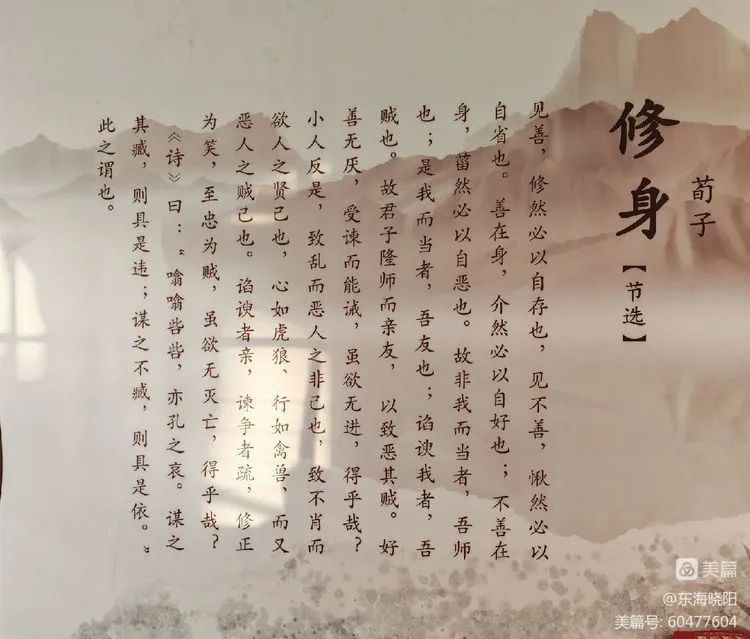 荀子
修身【节选】
见善，修然必以自存也，见不善，愀然必以
自省也。善在身，介然必以自好也；不善在
身，菑然必以自恶也。故非我而当者，吾师
也；是我而当者，吾友也；谄谀我者，吾
贼也。故君子隆师而亲友，以致恶其贼。好
善无厌，受谏而能诫，虽欲无进，得乎哉？
小人反是，致乱而恶人之非己也，致不肖而
欲人之贤己也，心如虎狼、行如禽兽、而又
恶人之贼己也。谄谀者亲，谏争者疏，修正
为笑，至忠为贼，虽欲无灭亡，得乎哉？
《诗》曰：“噏噏呰呰，亦孔之哀。谋之
其臧，则具是违；谋之不臧，则具是依。”
此之谓也。
美篇
@东海晓阳
美篇号: 60477604